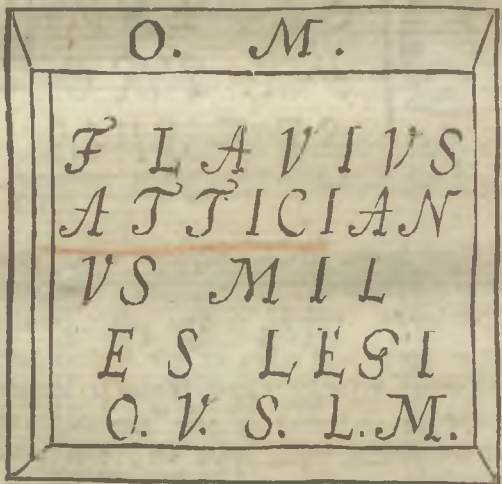 O. M.
FLAVIVS
ATTICIAN
VS MIL
ES LEGI
O. V. S. L. M.